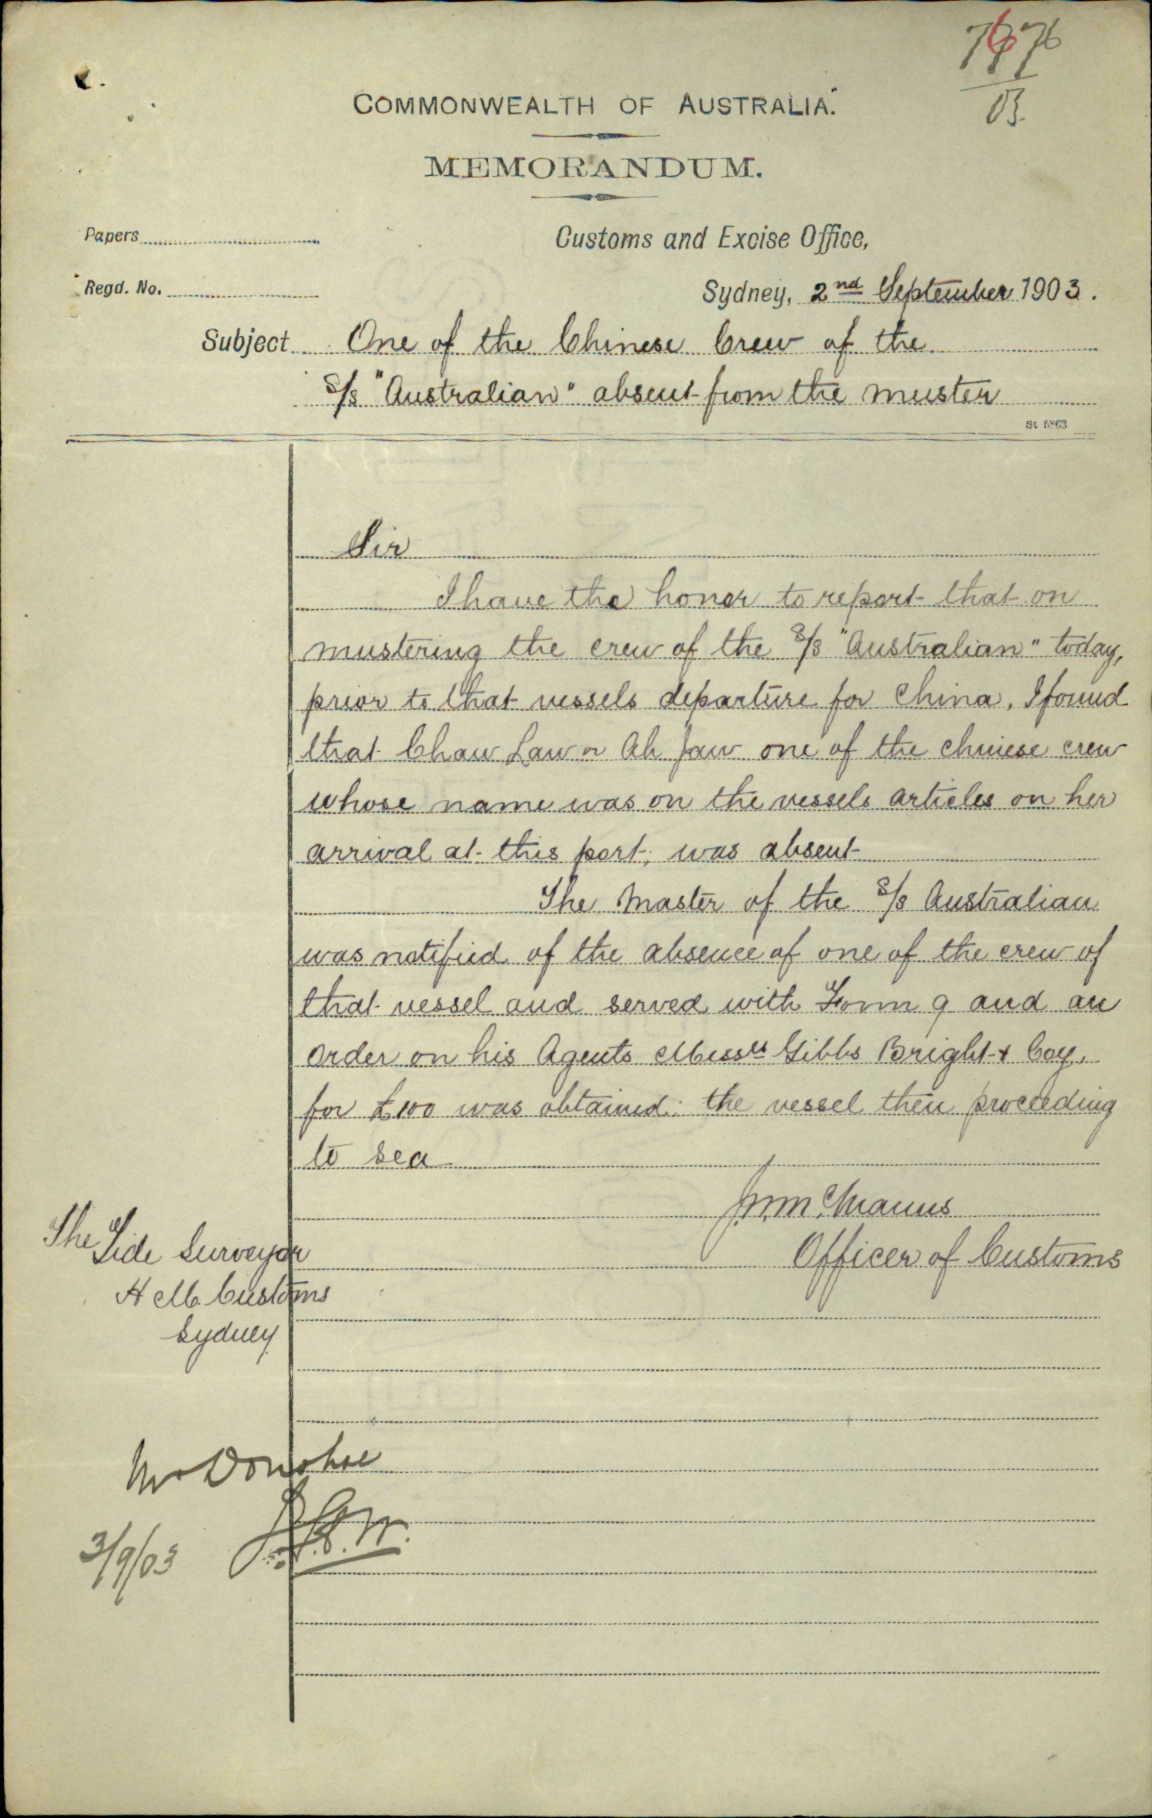 COMMONWEALTH OF AUSTRALIA.
MEMORANDUM.
03.
Papers
Customs and Excise Office,
Regd. No.
Sydney, 2nd September 1903.
Subject One of the Chinese Crew of the
S/s "Australian" absent from the muster
Sir
I have the honor to report that on
mustering the crew of the S/s "Australian" today,
prior to that vessels departure for China, I found
that Chaw Law or Ah Jaw one of the chinese crew
whose name was on the vessels articles on her
arrival at this port, was absent
The Master of the S/s Australian
was notified of the absence of one of the crew of
that vessel and served with Form 9 and an
order on his Agents Messrs Gibbs Bright & Coy.
for £100 was obtained: the vessel then proceeding
to sea
McManus
Officer of Customs
The Tide Surveyor
H M Customs
Sydney
Mr Donohoe
3/9/03